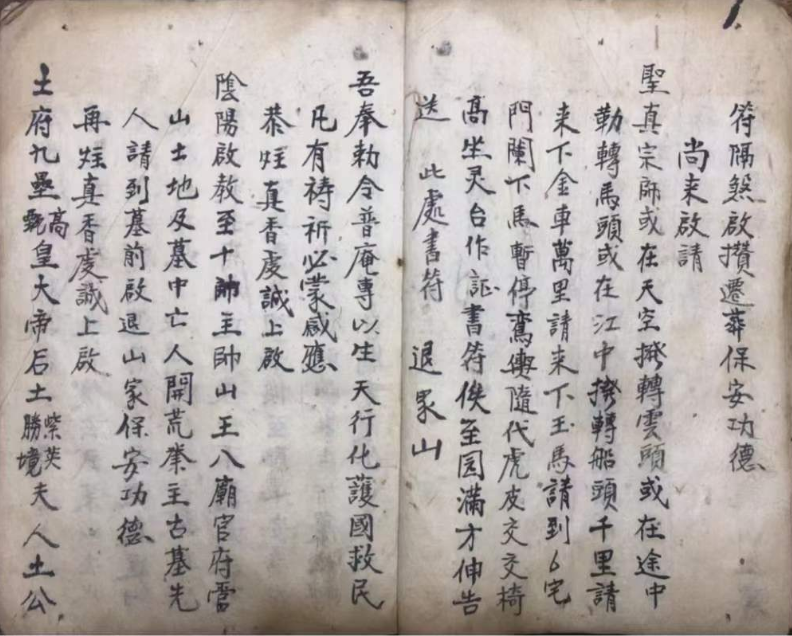 符隔煞啟攢遷葬保安功德
尚来啟請
聖真宗師或在天空撥轉雲頭或在途中
勒轉馬頭或在江中撥轉船頭千里請
来下金車萬里請来下玉馬請到6宅
門闌下馬暫停鸞輿隨代虎皮交交椅
高坐灵台作証書符俟至圆滿才伸告
送 此處書符 退冢山
吾奉勅令普庵專以生天行化護國救民
凡有祷祈必蒙感應
恭炷真香虔誠上啟
陰陽啟教至十帥主帥山王八廟官府雷
山土地及墓中亡人開荒禁主古墓先
人請到墓前啟退山家保安功德
再炷真香虔誠上啟
土府九壘高皇大帝后土紫英勝境夫人土公